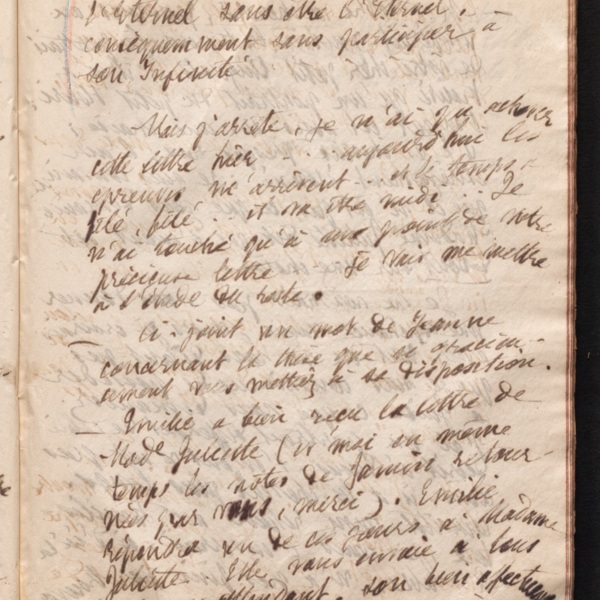 l'Eternel sans être l'Eternel,
conséquemment sans participer à
son Infinité.
Mais j'arrête, je n'ai pu achever
cette lettre hier ... aujourd'hui les
épreuves m'arrivent ... et le temps
filé, filé .. il va être midi .. Je
n'ai touché qu'à un point de votre
précieuse lettre Je vais me mettre
à l'étude du reste.
Ci-joint un mot de Jeanne
concernant la que si gracieu-
sement vous mettez à sa disposition.
— Emilie a bien reçu la lettre de
Made Juliette (et moi en même
temps les notes de Jamin retour-
nées par vous, merci). Emilie
répondra un de ces jours à Madame
Juliette. Elle vous envoie à tous
attendant, son bien affectueux